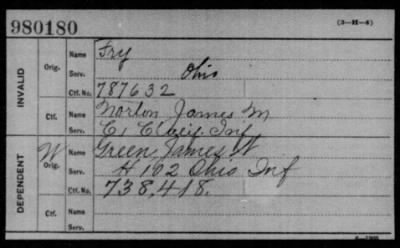 980180 (3-H-4)
INVALID
Orig. Name Fry
Serv. Ohio
Ctf. No. 787632
Ctf. Name Norton James M
Serv. C, Inf
DEPENDENT
W Orig. Name Green, James W
Serv. H 102 Ohio Inf
Ctf. No. 738,418.
Ctf. Name
Serv.